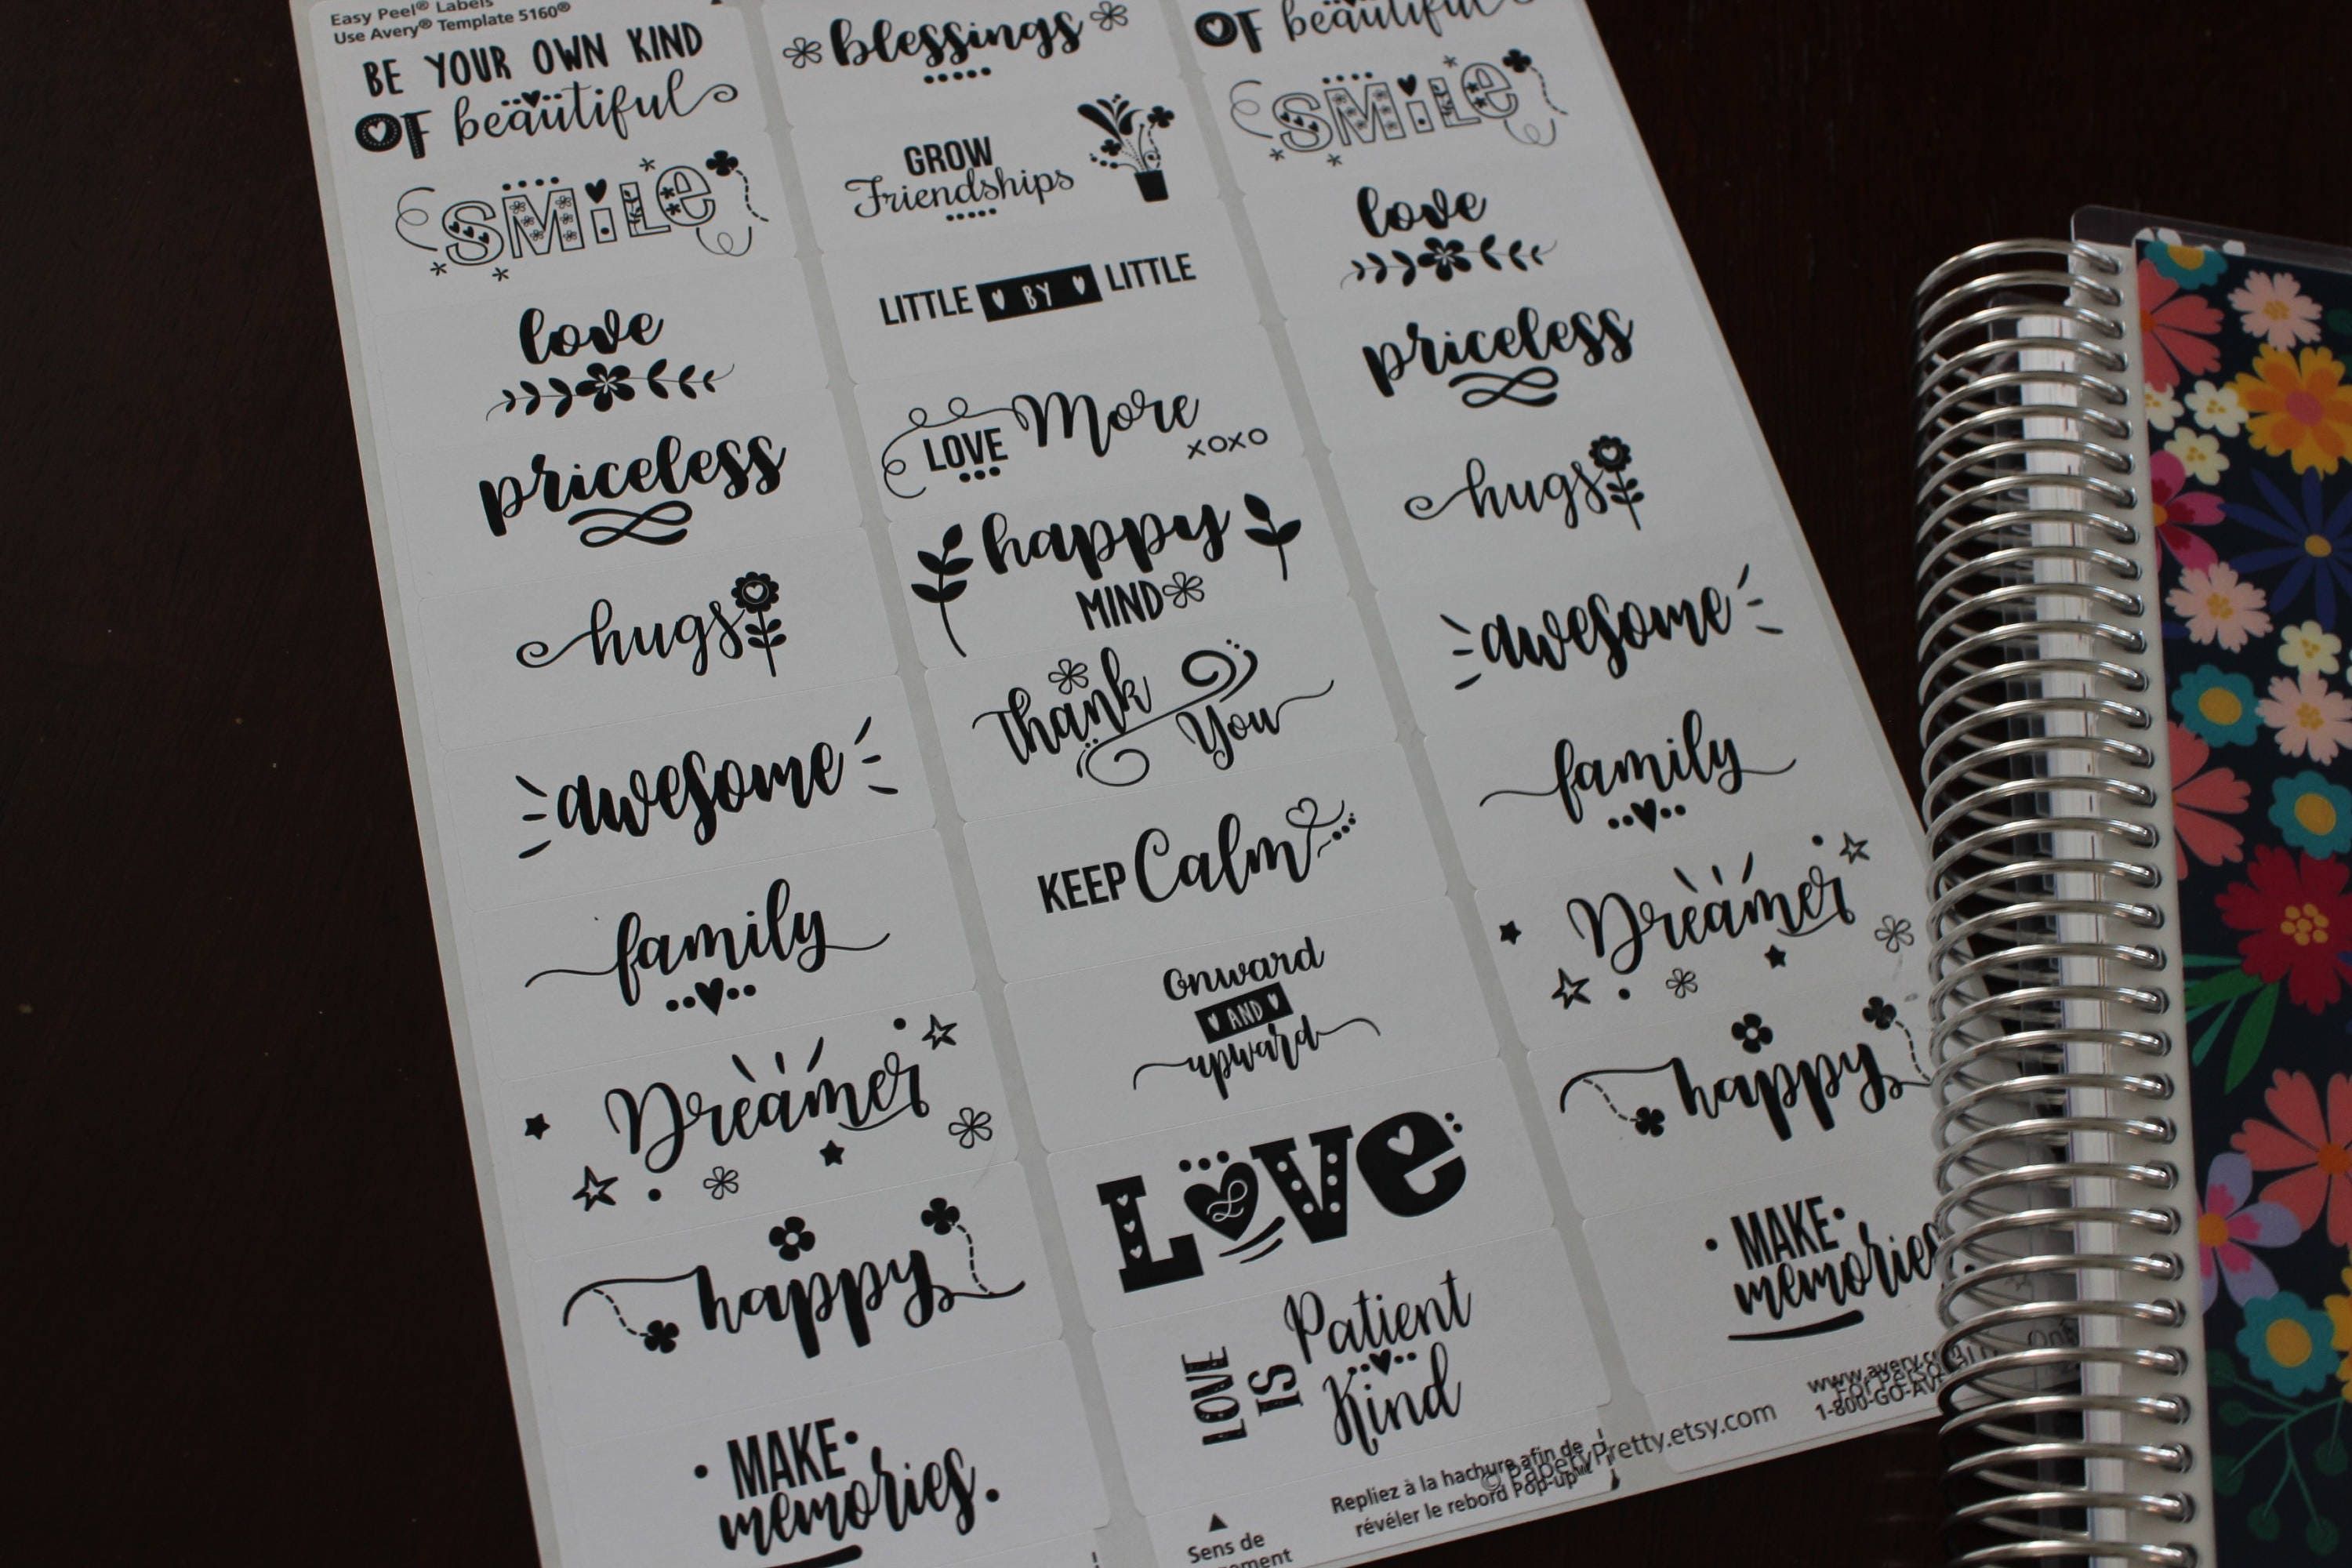 Easy Peel® Labels
Use Avery® Template 5160®
BE YOUR OWN KIND
OF beautiful
SMiLe
love
priceless
hugs
awesome
family
Dreamer
happy
MAKE
memories.
blessings
GROW
Friendships
LITTLE BY LITTLE
LOVE More
XOXO
happy
MIND
Thank
You
KEEP Calm
onward
AND
upward
LOVe
LOVE IS Patient
Kind
Repliez à la hachure afin de
révéler le rebord Pop-up
Sens de
OF beautiful
SMiLe
love
priceless
hugs
awesome
family
Dreamer
happy
MAKE
memories
www.avery.com
For Personal
1-800-GO-AVE
© PaperyPretty.etsy.com